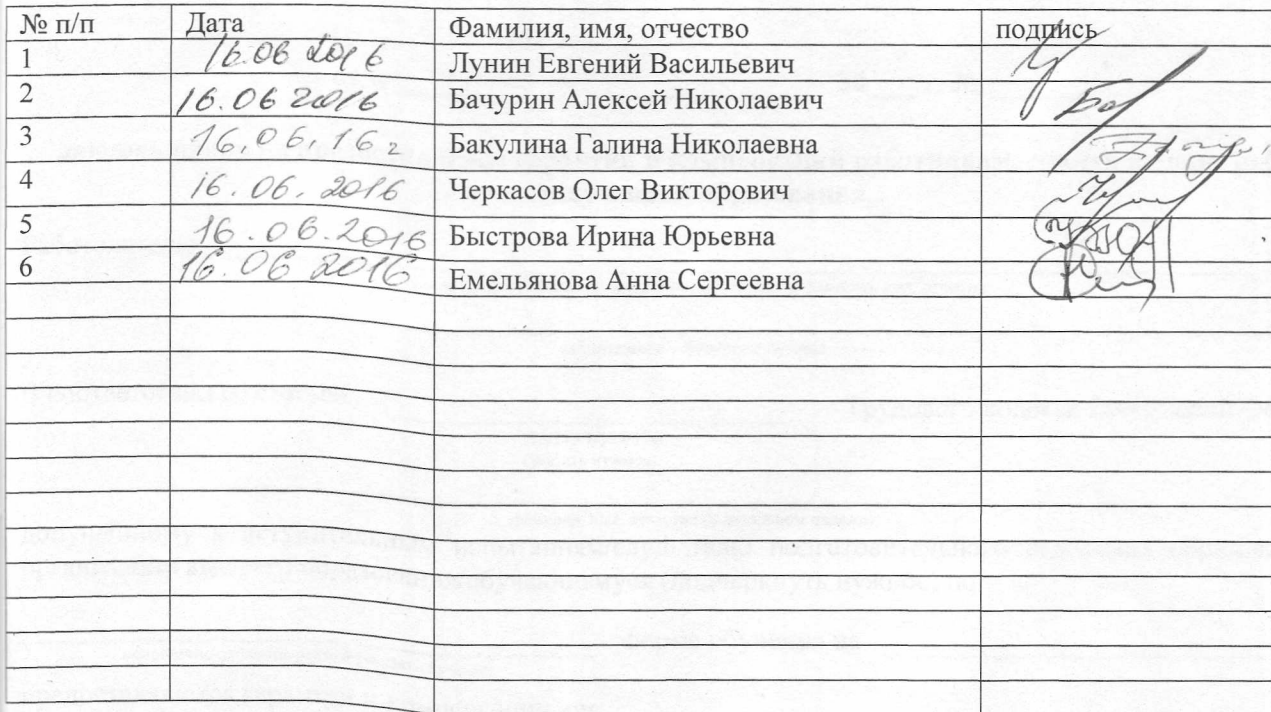 № п/п Дата Фамилия, имя, отчество подпись
1 16.06 2016 Лунин Евгений Васильевич
2 16.06 2016 Бачурин Алексей Николаевич
3 16.06.16г Бакулина Галина Николаевна
4 16.06.2016 Черкасов Олег Викторович
5 16.06.2016 Быстрова Ирина Юрьевна
6 16.06 2016 Емельянова Анна Сергеевна